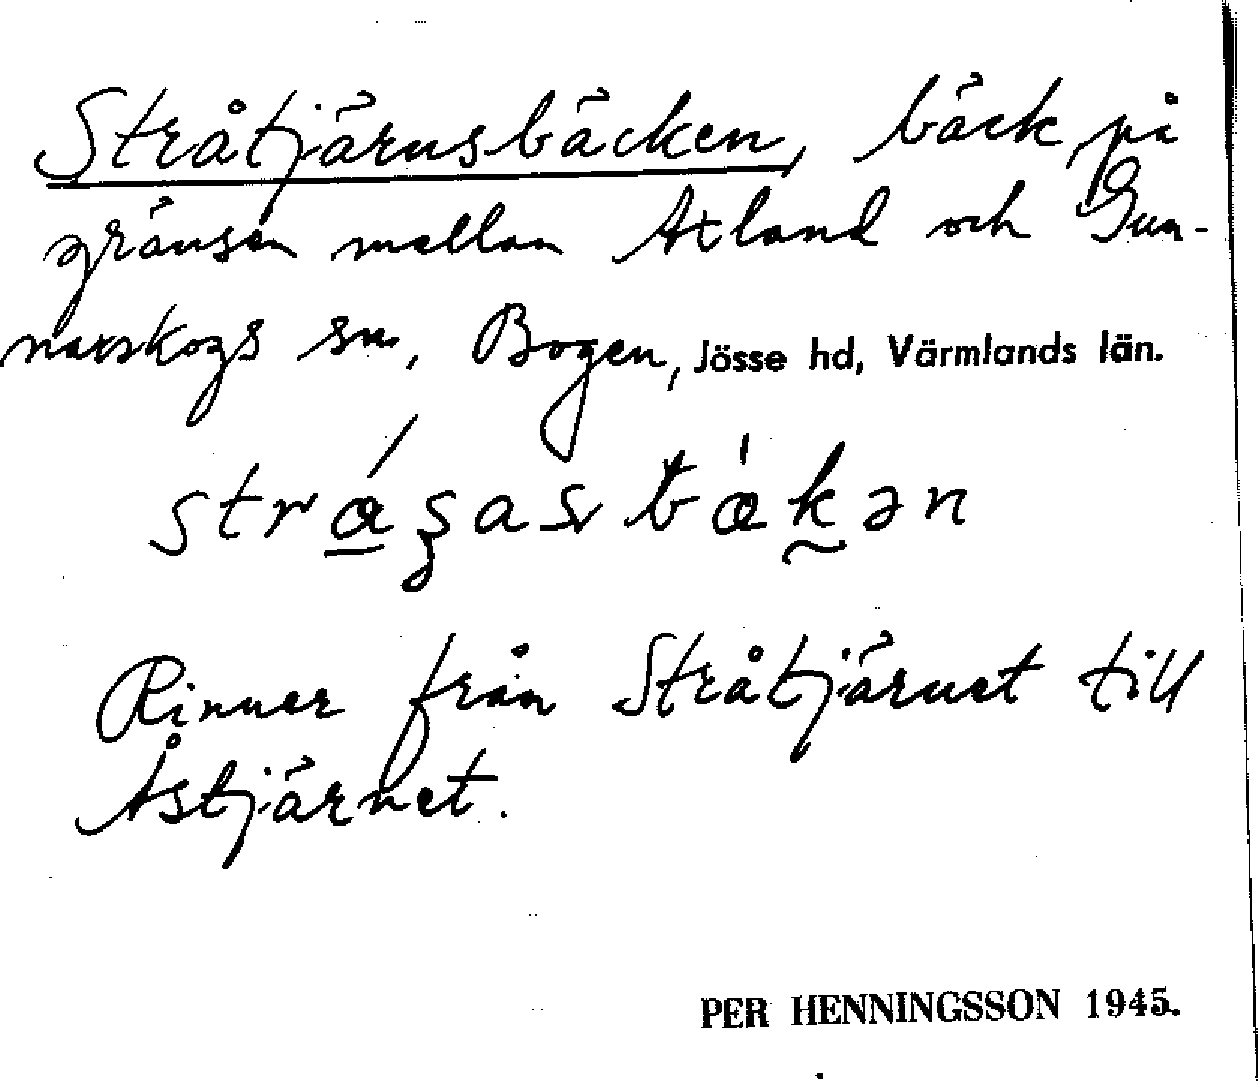 Stråtjärnsbäcken, bäck på
gränsen mellan Axland och Gun-
narskogs sn, Bogen, Jösse hd, Värmlands län.
Rinner från Stråtjärnet till
Åstjärnet.
PER HENNINGSSON 1945.